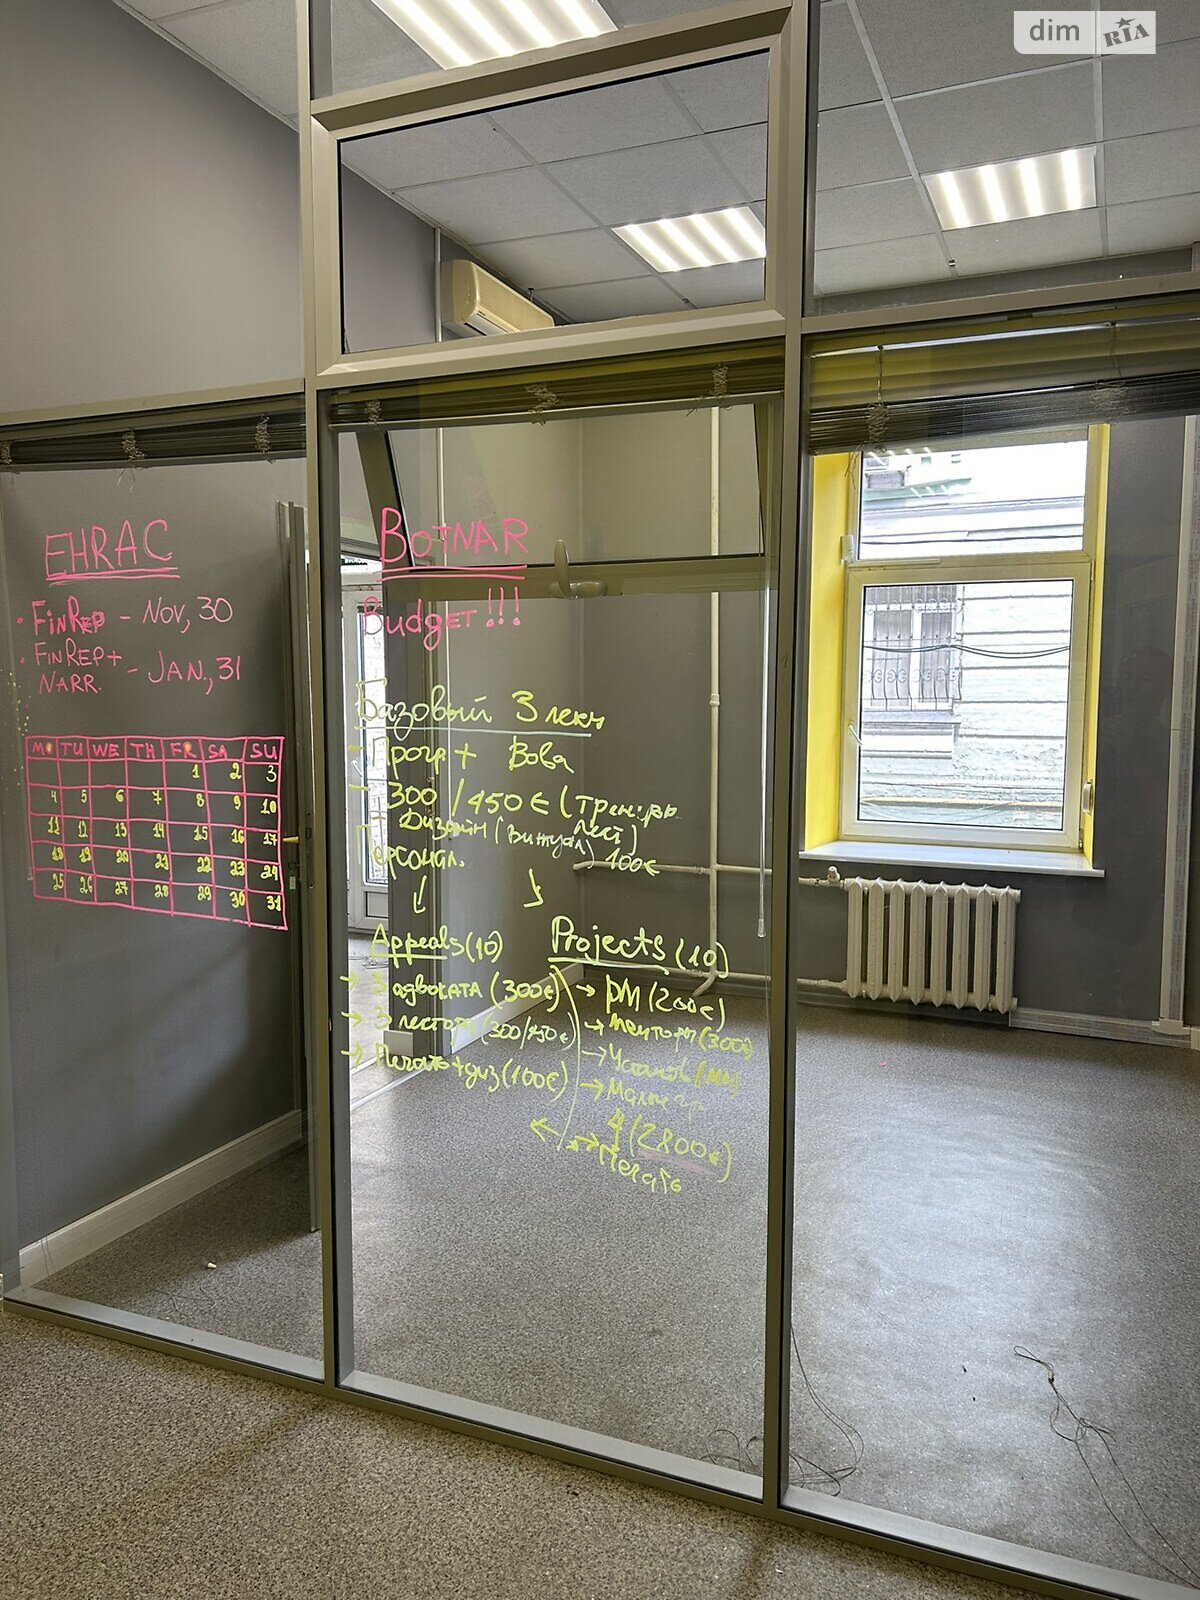 dim RIA
EHRAC
• FinRep - Nov, 30
• FinRep+
NARR. - JAN., 31
MO TU WE TH FR SA SU
1 2 3
4 5 6 7 8 9 10
11 12 13 14 15 16 17
18 19 20 21 22 23 24
25 26 27 28 29 30 31
BOTNAR
Budget!!!
Базовый 3 лекц
- Прогр + Вова
- 300 / 450 € (
Дизайн (
Персонал. 100€
Appeals (10)
→ 3 адвоката (300€)
→ 3 (300/450€)
→ Печать + диз (100€)
Projects (10)
→ PM (200€)
→ (300)
→
→
4 (2800€)
→ Печать